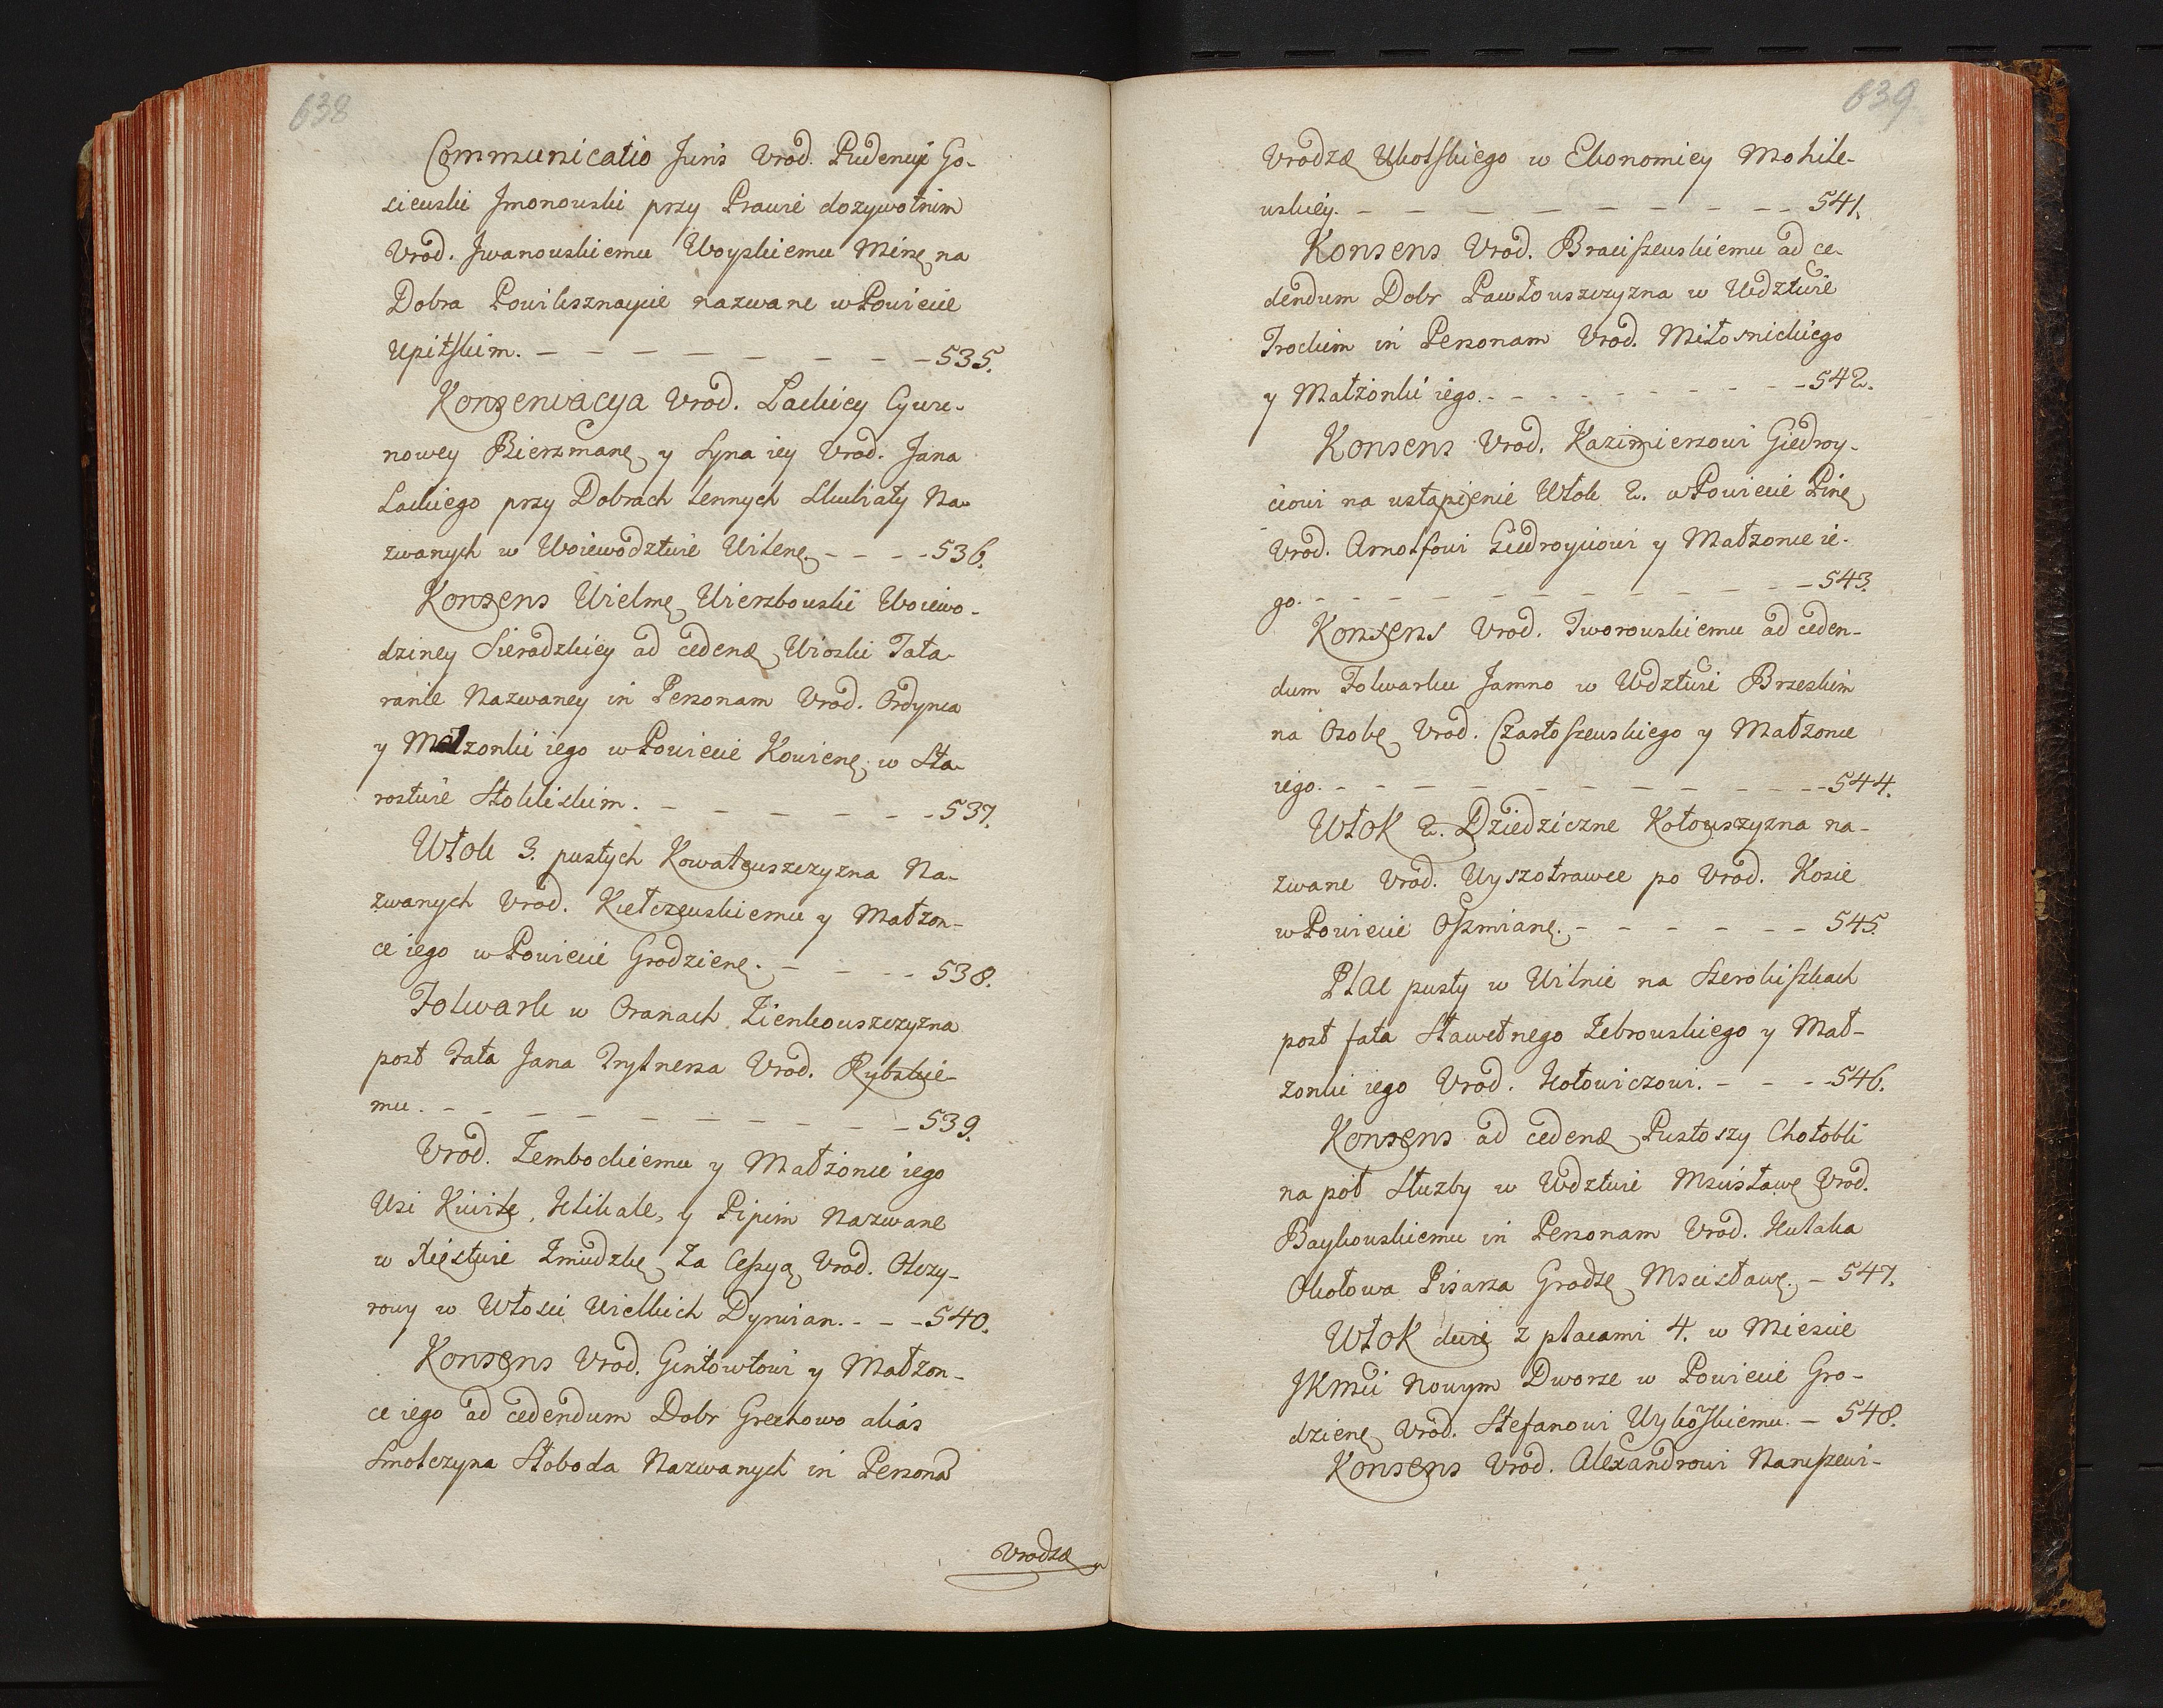 638
Communicatio Juris Vrod. Pudencyi Go-
siewski Jmonowski przy Prawie dozywotnim
Vrod. Jwanowskiemu Woyskiemu Minę na
Dobra Powiksznaycie nazwane w Powiecie
Upitskim. - - - - - - - - 535.
Konserwacya Vrod. Lackiey Cywu-
nowey Bierzmanę y Syna iey Vrod. Jana
Lackiego przy Dobrach Lennych Skukiały Na-
zwanych w Woiewodztwie Wilenę - - - - 536.
Konsens Wielmę Wierzbowski Woiewo-
dziney Sieradzkiey ad cedenđ Wioski Tata-
rańce Nazwaney in Personam Vrod. Ordynca
y Małzonki iego w Powiecie Kowienę w Sta-
rostwie Stokliskim. - - - - - - 537.
Włok 3. pustych Kowalewszczyzna Na-
zwanych Vrod. Kiełczewskiemu y Małzon-
ce iego w Powiecie Grodzienę. - - - - 538.
Folwark w Oranach Zienkowszczyzna
post Fata Jana Trytnera Vrod. Rybskie-
mu. - - - - - - - - - 539.
Vrod. Zembockiemu y Małżonce iego
Wsi Kiwile, Klikale, y Pipim Nazwane
w Xięstwie Zmudzkę Za Cessyą Vrod. Olszy-
rowy w Włosci Wielkich Dyrwian. - - - 540.
Konsens Vrod. Gintowtowi y Małzon-
ce iego ad cedendum Dobr Grechowo aliàs
Smolczyna Słoboda Nazwanych in Personā
Vrodzđ
639
Vrodzđ Ukolskiego w Ekonomiey Mohile-
wskiey. - - - - - - - - - - 541.
Konsens Vrod. Braciszewskiemu ad ce-
dendum Dobr Pawłowszczyzna w Wdztwie
Trockim in Personam Vrod. Miłosnickiego
y Małżonki iego. - - - - - - - - 542.
Konsens Vrod. Kazimierzowi Giedroy-
ciowi na ustąpienie Włok 2. w Powiecie Pinę
Vrod. Arnolfowi Giedroyciowi y Małzonce ie-
go. - - - - - - - - - - - 543.
Konsens Vrod. Tworowskiemu ad ceden-
dum Folwarku Jamno w Wdztwi Brzeskim
na Osobę Vrod. Czastoszewskiego y Małzonce
iego. - - - - - - - - - - - 544.
Włok 2. Dziedziczne Kotowszyzna na-
zwane Vrod. Wyszotrawce po Vrod. Kosie
w Powiecie Oszmianę. - - - - - - 545.
Plac pusty w Wilnie na Szerokiszkach
post fata Sławetnego Zebrowskiego y Mał-
zonki iego Vrod. Hołowiczowi. - - - - 546.
Konsens ad cedenđ Pustoszy Chotobli
na poł Słuzby w Wdztwie Mscisławę Vrod.
Baykowskiemu in Personam Vrod. Hutaka
Okołowa Pisarza Grodzę Mscisławę. - 547.
Włok dwie z placami 4. w Miescie
JKMci Nowym Dworze w Powiecie Gro-
dzienę Vrod. Stefanowi Wykowskiemu. - 548.
Konsens Vrod. Alexandrowi Naruszewi-